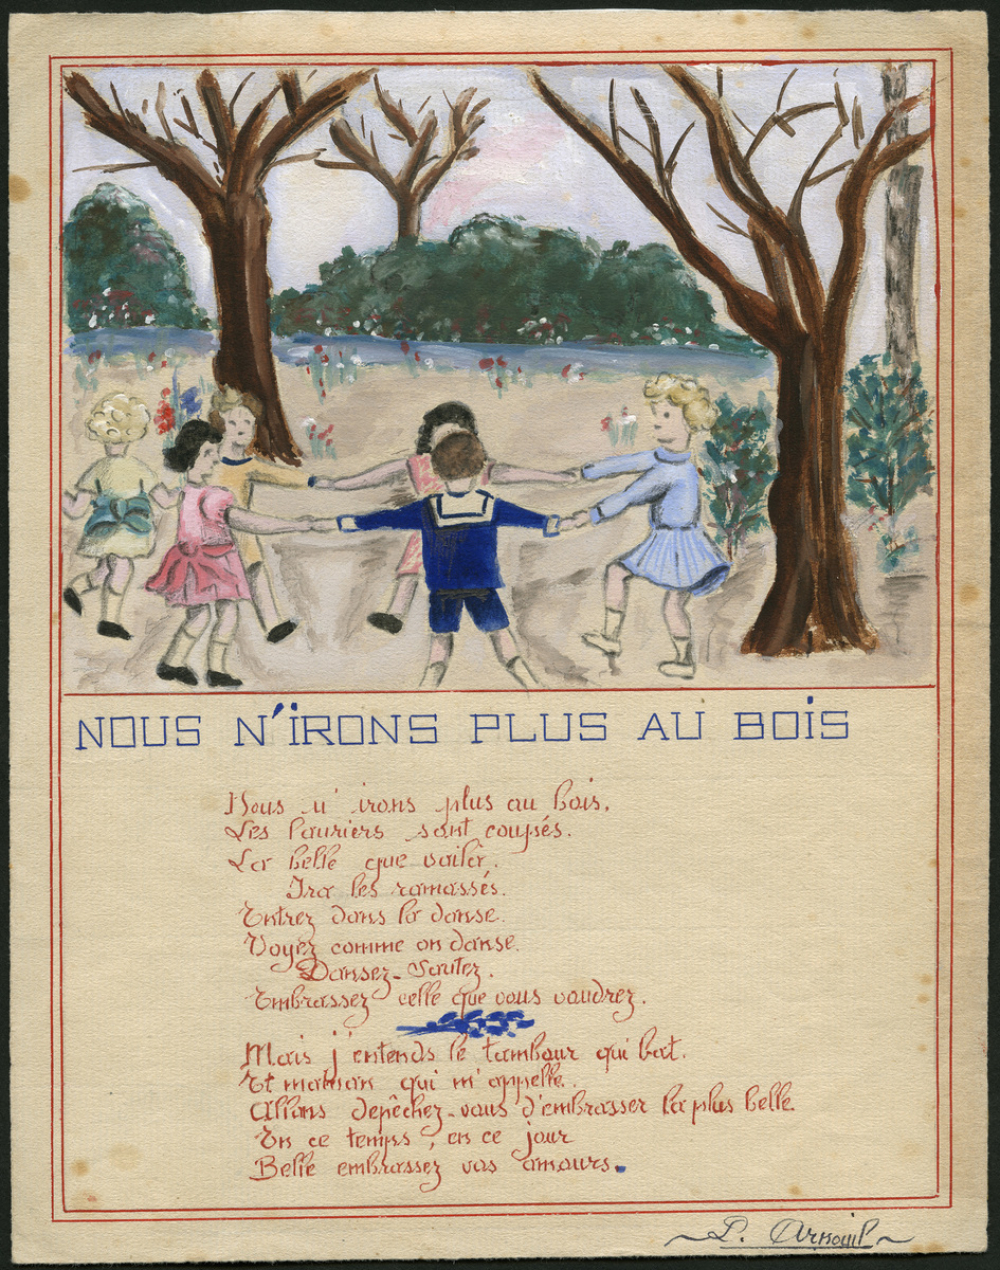 NOUS N'IRONS PLUS AU BOIS
Nous n' irons plus au bois.
Les lauriers sont coupés.
La belle que voilà.
Ira les ramassés.
Entrez dans la danse.
Voyez comme on danse.
Dansez - Sautez.
Embrassez celle que vous voudrez.
Mais j'entends le tambour qui bat.
Et maman qui m'appelle.
Allons depêchez-vous d'embrasser la plus belle.
En ce temps, en ce jour
Belle embrassez vos amours.
L. Arnouil